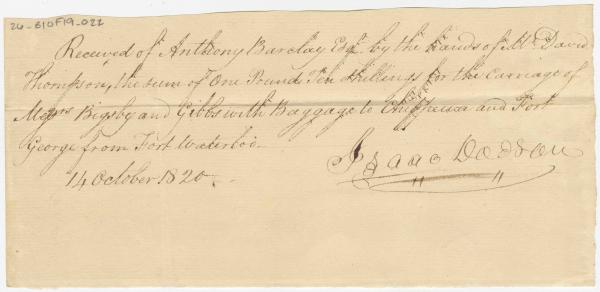 26-610F19-022
Received of Anthony Barclay Esqr by the Hands of Mr David
Thompson, the sum of One Pound Ten Shillings for the Carriage of
Messrs Bigsby and Gibbs with Baggage to Chippewa and Fort
George from Fort Waterloo
14 October 1820
Isaac Dodson